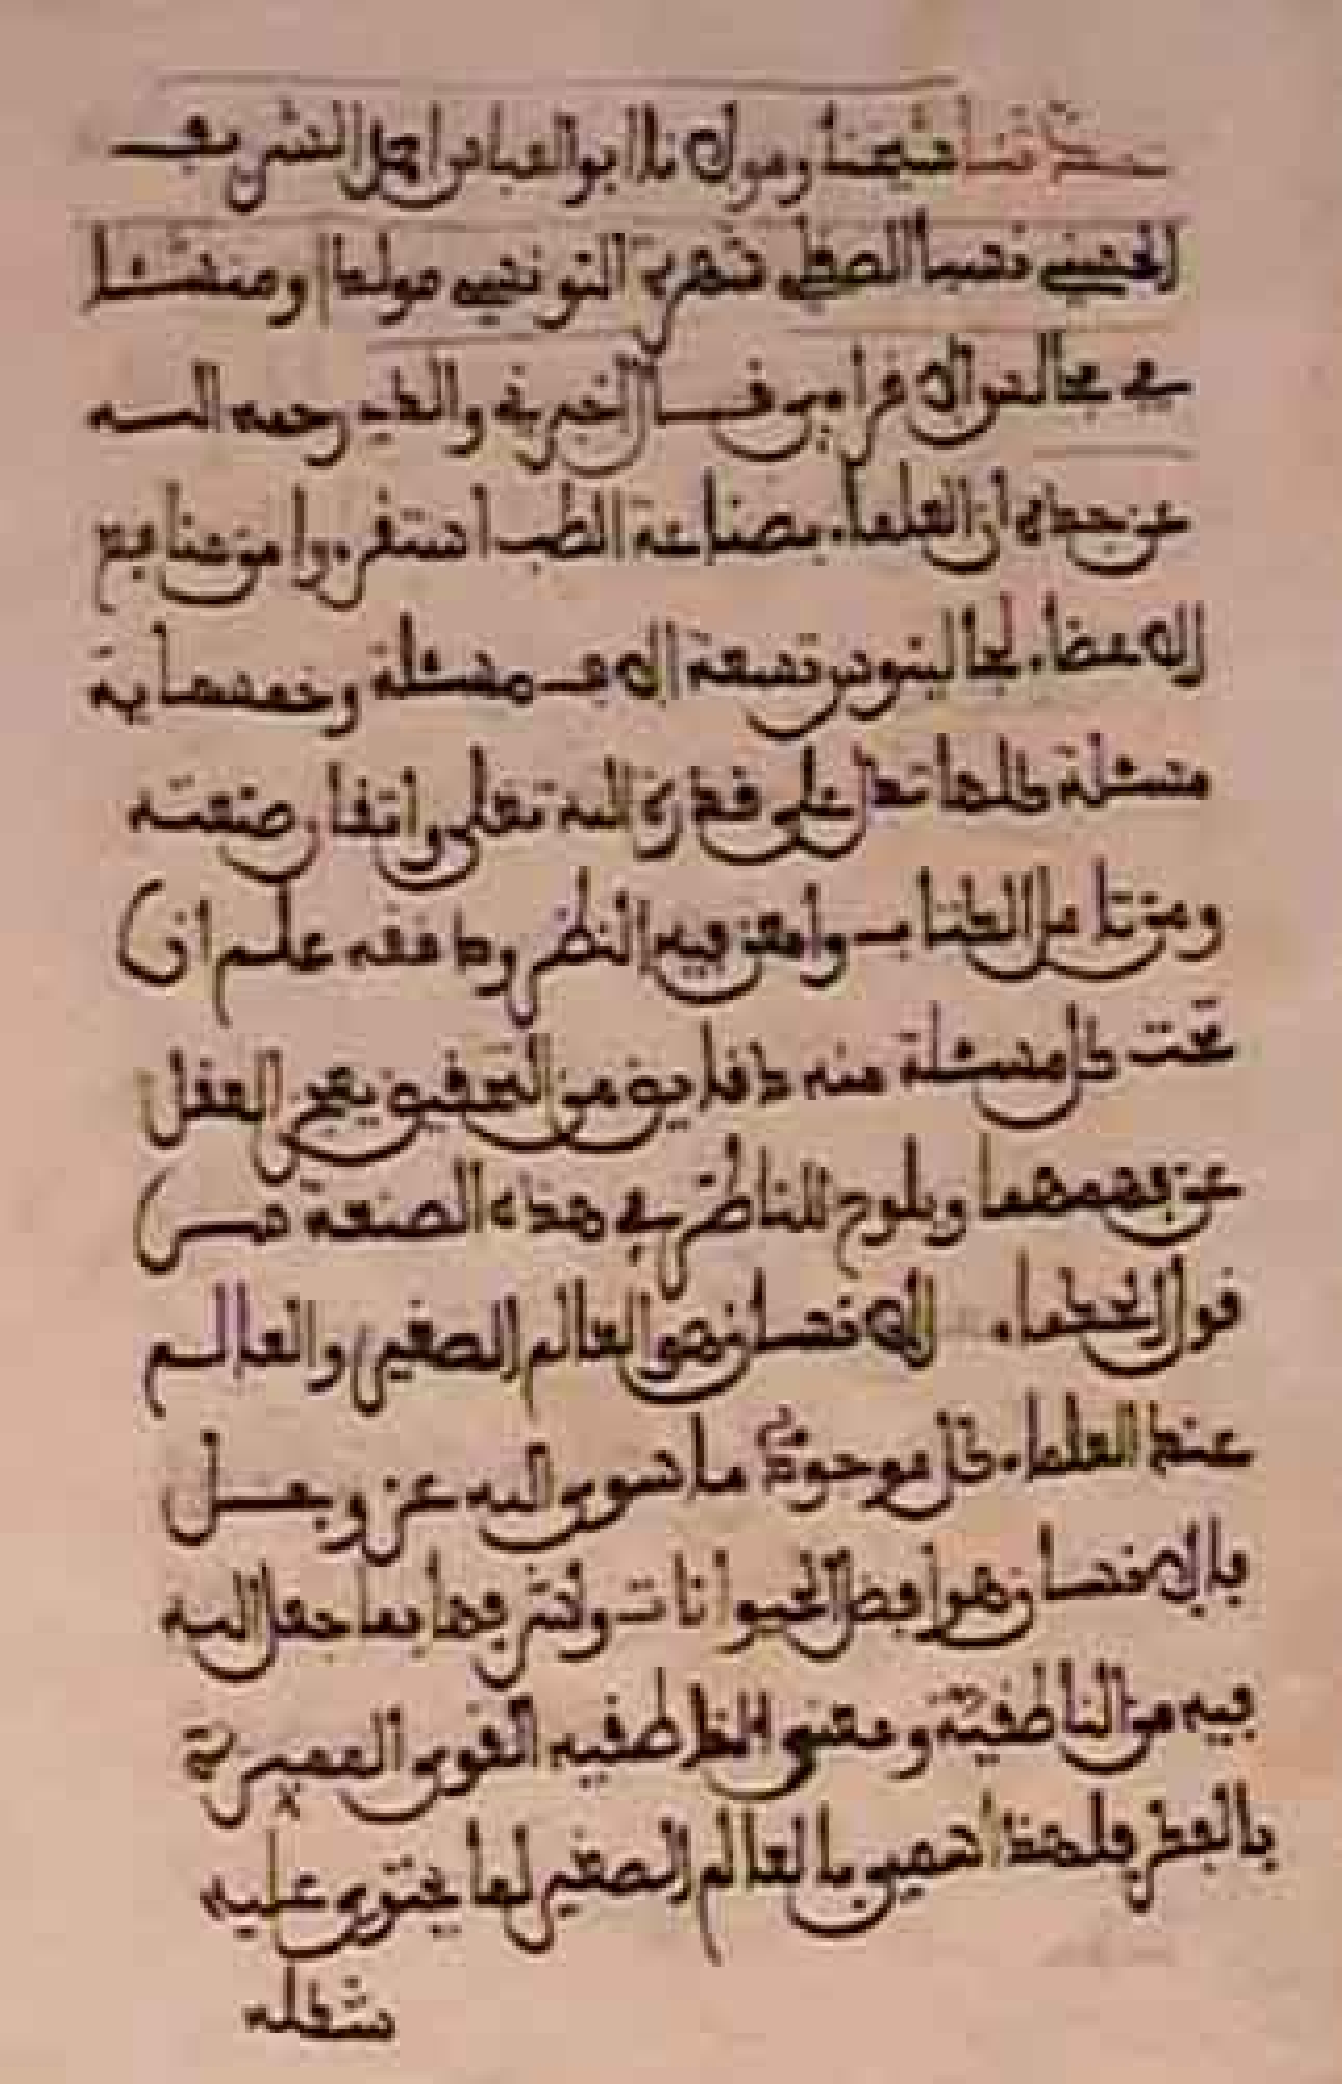 حدثنا شيخنا ومولانا ابو العباس احمد الشريف
الحسيني نسبا الصقلي شهرة التونسي مولدا ومنشئا
في مجالس الاقراء قال اخبرني والدي رحمه الله
عن جدي ان العلماء بصناعة الطب استقروا من منافع
الاعضاء لجالينوس تسعة الاف مسئلة وخمسماية
مسئلة كلها تدل على قدرة الله تعلى واتقان صنعته
ومن تامل الكتاب وامعن فيه النظر ودققه علم ان
تحت كل مسئلة منه دقايق من التحقيق يعجز العقل
عن فهمها ويلوح للناظر في هذه الصنعة سر
قول الحكماء الانسان هو العالم الصغير والعالم
عند العلماء كل موجود ما سوى الله عز وجل
بالانسان هو افضل الحيوانات واشرفها بما جعل الله
فيه من الناطقية ومعنى الناطقية القوى المميزة
بالفكر فلهذا سمي بالعالم الصغير لما يحتوي عليه
شكله